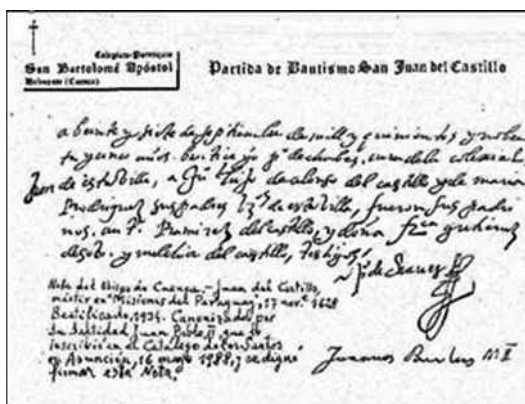 Colegiata-Parroquia
San Bartolomé Apóstol
Belmonte (Cuenca)
Partida de Bautismo San Juan del Castillo
a beinte y siete de septiembre de mill y quinientos y noben
ta y cinco años. bautice yo
de esta billa, a Ju. hijo de alonso del castillo y de maria
Rodriguez sus padres de esta billa, fueron sus padri
nos, Ramirez del castillo, y doña gutierrez
y melchia del castillo, testigos,
Nota del Obispo de Cuenca. - Juan del Castillo,
mártir en Misiones del Paraguay, 17 nov. 1628
Beatificado, 1934. Canonizado por
Su Santidad Juan Pablo II, que lo
inscribió en el Catálogo de los Santos
en Asunción, 16 mayo 1988, y se dignó
firmar esta Nota.
Joannes Paulus PP II